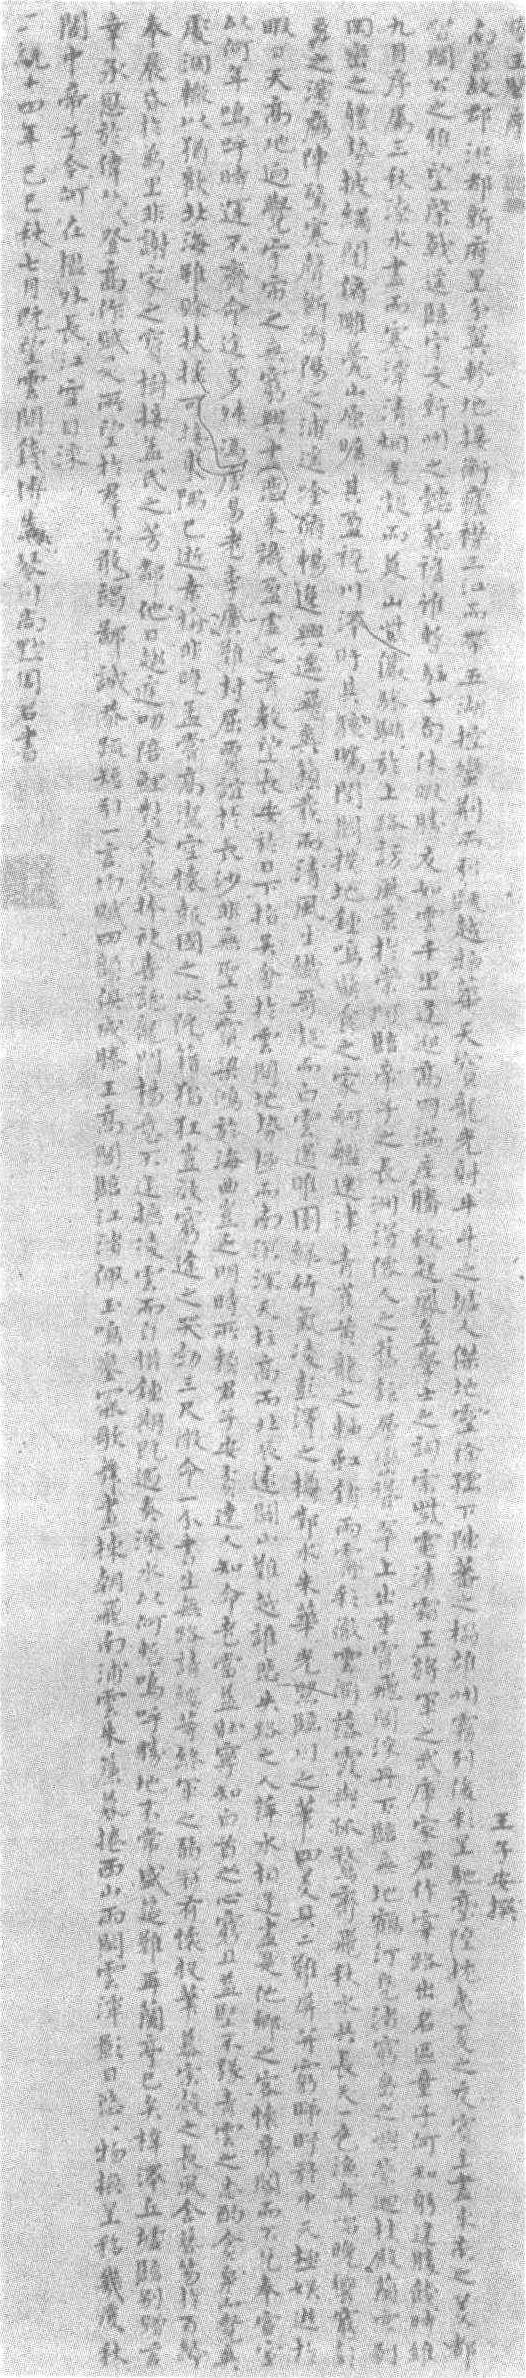 滕王閣序
王子安撰
南昌故郡洪都新府星分翼軫地接衡廬襟三江而帶五湖控蠻荊而引甌越物華天寶龍光射牛斗之墟人傑地靈徐孺下陳蕃之榻雄州霧列俊彩星馳臺隍枕夷夏之交賓主盡東南之美都
督閻公之雅望棨戟遙臨宇文新州之懿範襜帷暫駐十旬休暇勝友如雲千里逢迎高朋滿座騰蛟起鳳孟學士之詞宗紫電清霜王將軍之武庫家君作宰路出名區童子何知躬逢勝餞時維
九月序屬三秋潦水盡而寒潭清烟光凝而暮山紫儼驂騑於上路訪風景於崇阿臨帝子之長洲得仙人之舊館層巒聳翠上出重霄飛閣流丹下臨無地鶴汀鳧渚窮島嶼之縈迴桂殿蘭宮列
岡巒之體勢披繡闥俯雕甍山原曠其盈視川澤盱其駭矚閭閻撲地鐘鳴鼎食之家舸艦迷津青雀黃龍之軸虹銷雨霽彩徹雲衢落霞與孤鶩齊飛秋水共長天一色漁舟唱晚響窮彭
蠡之濱雁陣驚寒聲斷衡陽之浦遙吟俯暢逸興遄飛爽籟發而清風生纖歌凝而白雲遏睢園綠竹氣凌彭澤之樽鄴水朱華光照臨川之筆四美具二難并窮睇眄於中天極娛遊於
暇日天高地迥覺宇宙之無窮興盡悲來識盈虛之有數望長安於日下指吳會於雲間地勢極而南溟深天柱高而北辰遠關山難越誰悲失路之人萍水相逢盡是他鄉之客懷帝閽而不見奉宣室
以何年嗚呼時運不齊命途多舛馮唐易老李廣難封屈賈誼於長沙非無聖主竄梁鴻於海曲豈乏明時所賴君子安貧達人知命老當益壯寧知白首之心窮且益堅不墜青雲之志酌貪泉而覺爽
處涸轍以猶歡北海雖賒扶搖可接東隅已逝桑榆非晚孟嘗高潔空懷報國之心阮籍猖狂豈效窮途之哭勃三尺微命一介書生無路請纓等終軍之弱冠有懷投筆慕宗慤之長風舍簪笏於百齡
奉晨昏於萬里非謝家之寶樹接孟氏之芳鄰他日趨庭叨陪鯉對今晨捧袂喜託龍門楊意不逢撫凌雲而自惜鍾期既遇奏流水以何慚嗚呼勝地不常盛筵難再蘭亭已矣梓澤丘墟臨別贈言
幸承恩於偉餞登高作賦是所望於群公敢竭鄙誠恭疏短引一言均賦四韻俱成滕王高閣臨江渚佩玉鳴鑾罷歌舞畫棟朝飛南浦雲朱簾暮捲西山雨閑雲潭影日悠悠物換星移幾度秋
閣中帝子今何在檻外長江空自流
十四年己巳秋七月既望雲間錢博書